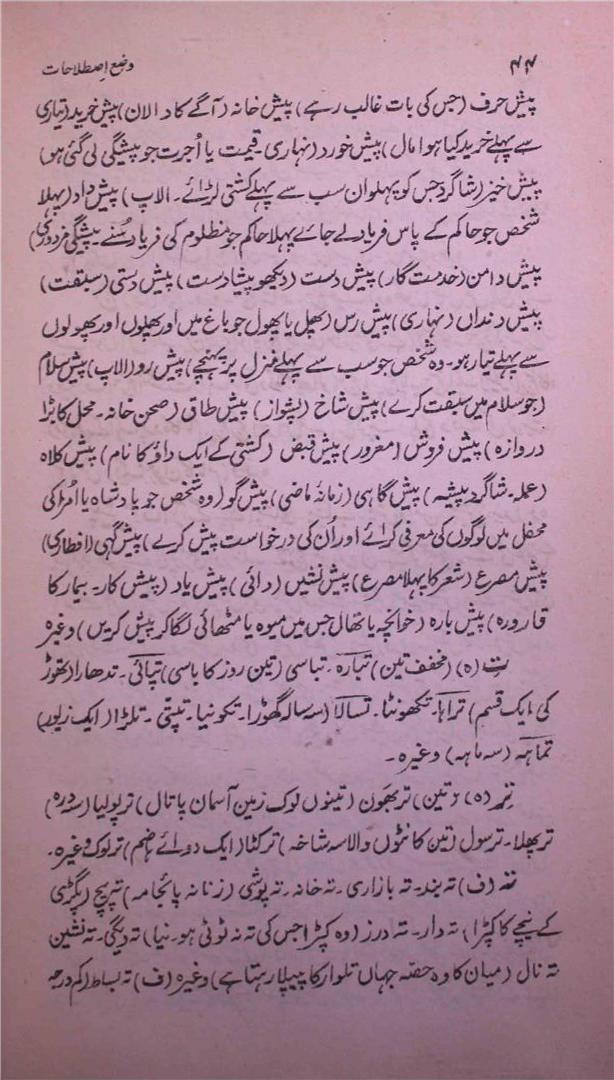 ۴۴
وضع اصطلاحات
پیش حرف (جس کی بات غالب رہے) پیش خانہ (آگے کا دالان) پیش خرید (تیاری
سے پہلے خرید کیا ہوا مال) پیش خورد (نہاری۔ قیمت یا اُجرت جو پیشگی لی گئی ہو)
پیش خیز (شاگرد جس کو پہلوان سب سے پہلے کشتی لڑائے۔ الاپ) پیش داد (پہلا
شخص جو حاکم کے پاس فریاد لے جائے پہلا حاکم جو مظلوم کی فریاد سُنے۔ پیشگی مزدوری)
پیش دامن (خدمت گار) پیش دست (دیکھو پیشادست) پیش دستی (سبقت)
پیش دنداں (نہاری) پیش رس (پھل یا پھول جو باغ میں اور پھلوں اور پھولوں
سے پہلے تیار ہو۔ وہ شخص جو سب سے پہلے منزل پر پہنچے) پیش رو (الاپ) پیش سلام
(جو سلام میں سبقت کرے) پیش شاخ (پشواز) پیش طاق (صحن خانہ۔ محل کا بڑا
دروازہ) پیش فروش (مغرور) پیش قبض (کشتی کے ایک داؤ کا نام) پیش کلاہ
(عملہ۔ شاگرد پیشہ) پیش گاہی (زمانۂ ماضی) پیش گو (وہ شخص جو بادشاہ یا امرا کی
محفل میں لوگوں کی معرفی کرائے اور اُن کی درخواست پیش کرے) پیش گہی (افطاری)
پیش مصرع (شعر کا پہلا مصرع) پیش نشیں (دائی) پیش یاد (پیش کار۔ بیمار کا
قارورہ) پیش پارہ (خوانچہ یا تھال جس میں میوہ یا مٹھائی لگا کر پیش کریں) وغیرہ
تِ (ہ) (مخفف تین) تبارہ۔ تباسی (تین روز کا باسی) تپائی۔ تدھارا (تھوڑ
کی ایک قسم) تراہا۔ تکھونٹا۔ تسالا (سہ سالہ گھوڑا۔ تکونیا۔ تپتی۔ تلڑا (ایک زیور)
تماہہ (سہ ماہہ) وغیرہ۔
تِر (ہ) (تین) تربھون (تینوں لوک زمین آسمان پاتال) ترپولیا (سہ درہ)
ترپھلا۔ ترسول (تین کانٹوں والا سہ شاخہ) ترکٹا (ایک دوائے ہاضم) ترلوک وغیرہ۔
تہ (ف) تہ بند۔ تہ بازاری۔ تہ خانہ۔ تہ پوشی (زنانہ پائجامہ) تہ پیچ (پگڑی
کے نیچے کا کپڑا) تہ دار۔ تہ درز (وہ کپڑا جس کی تہ نہ ٹوٹی ہو۔ نیا) تہ دیگی۔ تہ نشین
تہ نال (میان کا وہ حصہ جہاں تلوار کا پیپلا رہتا ہے) وغیرہ (ف) تہ بساط (کم درجہ